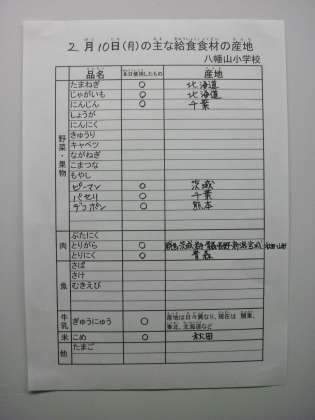 2月10日(月)の主な給食食材の産地
八幡山小学校
品名 本日使用したもの 産地
野菜・果物
たまねぎ ○ 北海道
じゃがいも ○ 北海道
にんじん ○ 千葉
しょうが
にんにく
きゅうり
キャベツ
ながねぎ
こまつな
もやし
ピーマン ○ 茨城
パセリ ○ 千葉
デコポン ○ 熊本
肉
ぶたにく
とりがら ○
とりにく ○ 青森
魚
さば
さけ
むきえび
牛乳 ぎゅうにゅう ○ 産地は日々異なり、現在は 関東、
東北、北海道など
米 こめ ○ 秋田
他 たまご